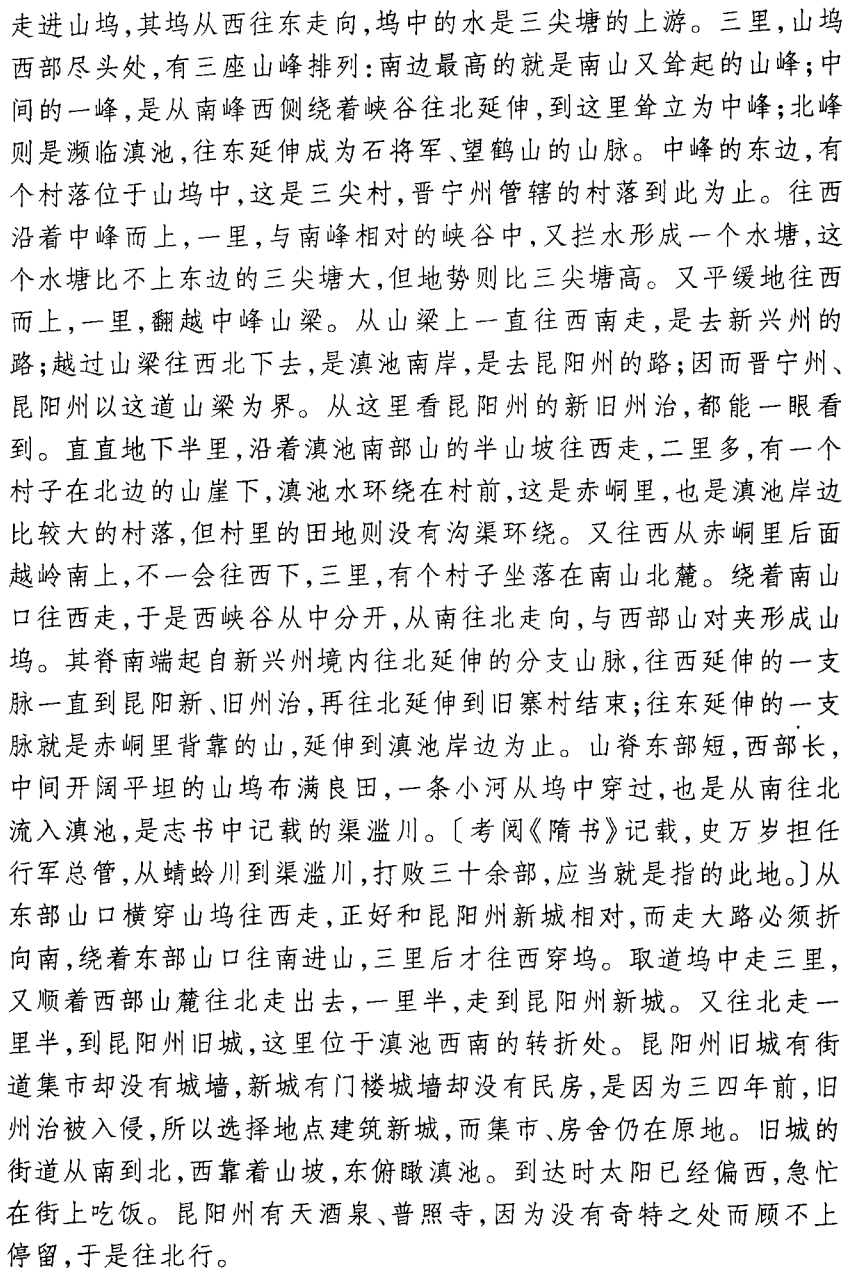 走进山坞,其坞从西往东走向,坞中的水是三尖塘的上游。三里,山坞
西部尽头处,有三座山峰排列:南边最高的就是南山又耸起的山峰;中
间的一峰,是从南峰西侧绕着峡谷往北延伸,到这里耸立为中峰;北峰
则是濒临滇池,往东延伸成为石将军、望鹤山的山脉。中峰的东边,有
个村落位于山坞中,这是三尖村,晋宁州管辖的村落到此为止。往西
沿着中峰而上,一里,与南峰相对的峡谷中,又拦水形成一个水塘,这
个水塘比不上东边的三尖塘大,但地势则比三尖塘高。又平缓地往西
而上,一里,翻越中峰山梁。从山梁上一直往西南走,是去新兴州的
路;越过山梁往西北下去,是滇池南岸,是去昆阳州的路;因而晋宁州、
昆阳州以这道山梁为界。从这里看昆阳州的新旧州治,都能一眼看
到。直直地下半里,沿着滇池南部山的半山坡往西走,二里多,有一个
村子在北边的山崖下,滇池水环绕在村前,这是赤峒里,也是滇池岸边
比较大的村落,但村里的田地则没有沟渠环绕。又往西从赤峒里后面
越岭南上,不一会往西下,三里,有个村子坐落在南山北麓。绕着南山
口往西走,于是西峡谷从中分开,从南往北走向,与西部山对夹形成山
坞。其脊南端起自新兴州境内往北延伸的分支山脉,往西延伸的一支
脉一直到昆阳新、旧州治,再往北延伸到旧寨村结束;往东延伸的一支
脉就是赤峒里背靠的山,延伸到滇池岸边为止。山脊东部短,西部长,
中间开阔平坦的山坞布满良田,一条小河从坞中穿过,也是从南往北
流入滇池,是志书中记载的渠滥川。〔考阅《隋书》记载,史万岁担任
行军总管,从蜻蛉川到渠滥川,打败三十余部,应当就是指的此地。〕从
东部山口横穿山坞往西走,正好和昆阳州新城相对,而走大路必须折
向南,绕着东部山口往南进山,三里后才往西穿坞。取道坞中走三里,
又顺着西部山麓往北走出去,一里半,走到昆阳州新城。又往北走一
里半,到昆阳州旧城,这里位于滇池西南的转折处。昆阳州旧城有街
道集市却没有城墙,新城有门楼城墙却没有民房,是因为三四年前,旧
州治被入侵,所以选择地点建筑新城,而集市、房舍仍在原地。旧城的
街道从南到北,西靠着山坡,东俯瞰滇池。到达时太阳已经偏西,急忙
在街上吃饭。昆阳州有天酒泉、普照寺,因为没有奇特之处而顾不上
停留,于是往北行。